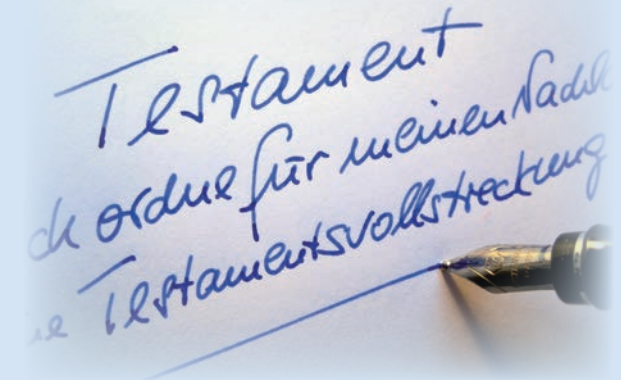 Testament
ch ordne für meinen Nachl
ne Testamentsvollstreckung